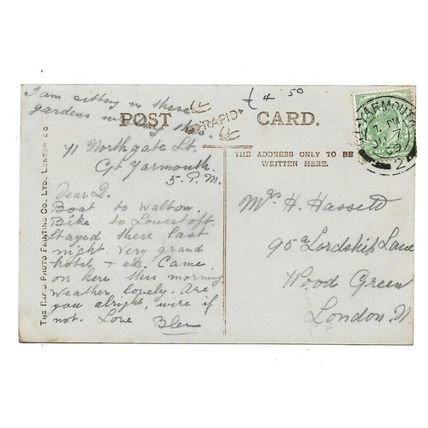 I am sitting in these
gardens
POST CARD.
"RAPID"
£4.50
THE ADDRESS ONLY TO BE
WRITTEN HERE.
THE RAPID PHOTO PRINTING CO., LTD., LONDON, E.C.
YARMOUTH
2
71 Northgate St.
Gt Yarmouth.
5. P.M.
Dear Q.
Boat to Walton.
Bike to Lowestoft.
Stayed there last
night. Very grand
hotel + etc. Came
on here this morning.
Weather lovely. Are
you alright, wire if
not. Love
Mrs H. Hassett
95a Lordship Lane
Wood Green
London. N